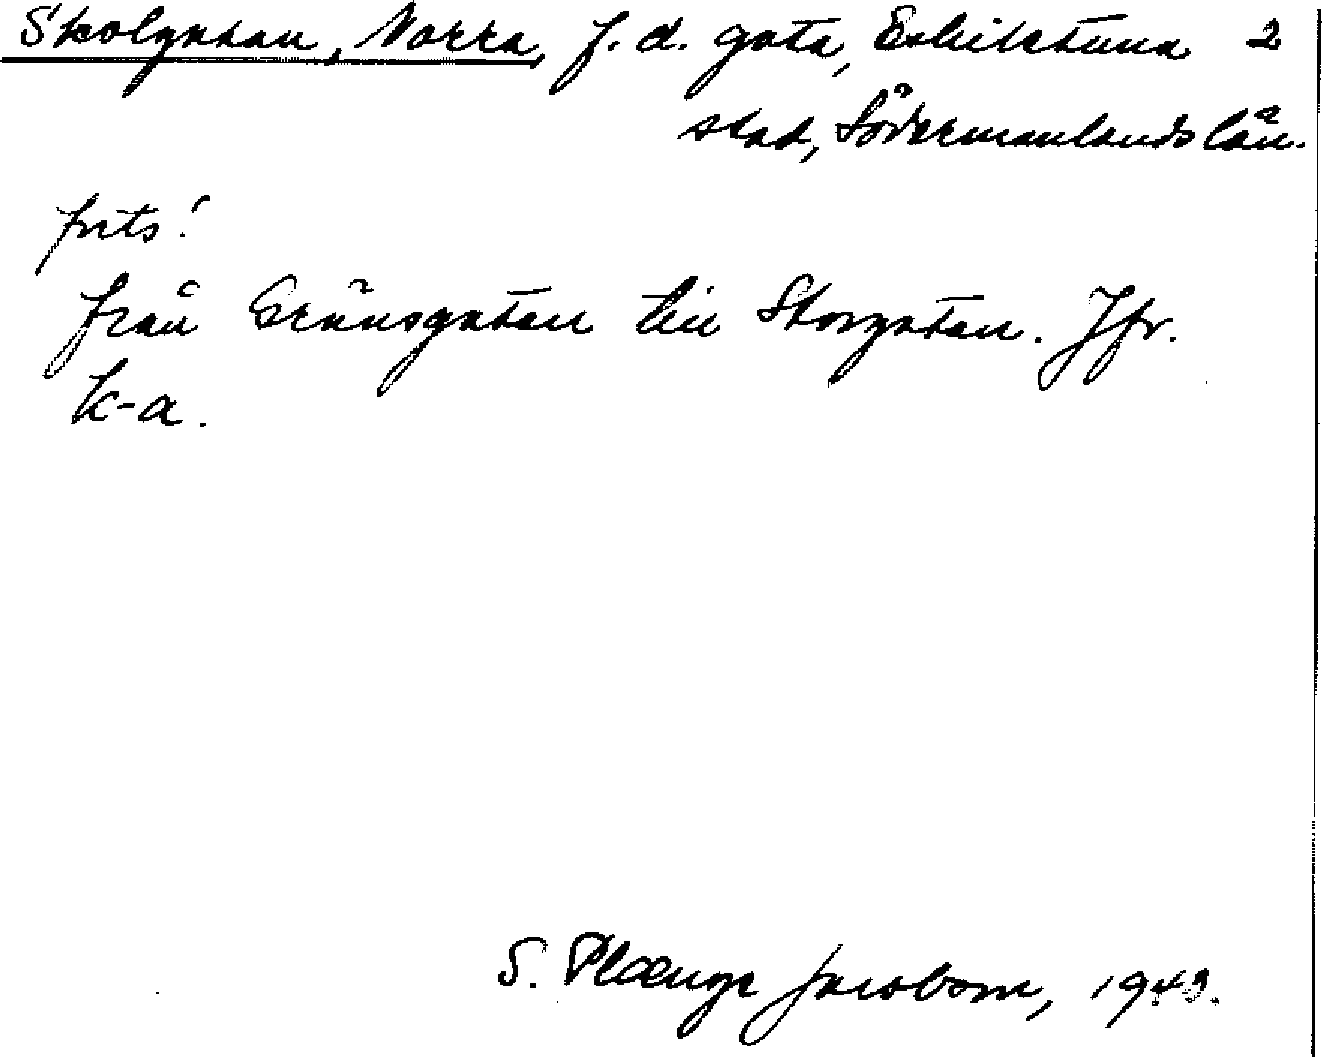 Skolgatan, Norra, f.d. gata, Eskilstuna 2
stad, Södermanlands län.
forts!
från Gränsgatan till Storgatan. Jfr.
k-a.
S. Plænge Jacobson, 1943.